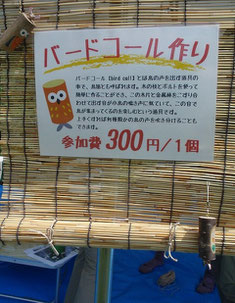 バードコール作り
バードコール【bird call】とは鳥の声を出す道具の
事で、鳥笛とも呼ばれます。木の枝とボルトを使って
簡単に作ることができ、この木片と金属棒をこすり合
わせて出す音が小鳥の鳴き声に似ていて、この音で
鳥が集まってくるのを楽しむという道具です。
上手くすれば何種類かの鳥の声を吹き分けることも
できます。
参加費 300円/1個